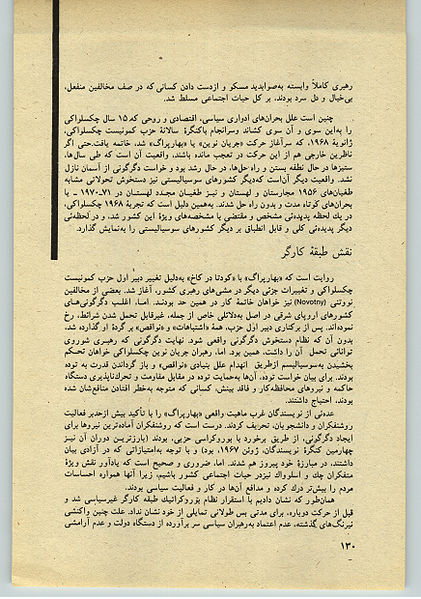 رهبری کاملاً وابسته به‌صوابدید مسکو و ازدست دادن کسانی‌که در صف مخالفین منفعل،
بی‌خیال و دل سرد بودند، بر کل حیات اجتماعی مسلط شد.
چنین است علل بحران‌های ادواری سیاسی، اقتصادی و روحی که ۱۵ سال چکسلواکی
را به‌این سوی و آن سوی کشاند وسرانجام باکنگرهٔ سالانهٔ حزب کمونیست چکسلواکی،
ژانویهٔ ۱۹۶۸، که سرآغاز حرکت «جریان نوین» یا «بهارپراگ» شد، خاتمه یافت.حتی اگر
ناظرین خارجی هم از این حرکت در تعجب مانده باشند، واقعیت آن است که طی سال‌ها،
ستیزها در حال نطفه بستن و راه حل‌ها، در حال رشد بود و خواست دگرگونی از آسمان نازل
نشد. واقعیت دیگر آن‌است که‌دیگر کشورهای سوسیالیستی نیز دستخوش تحولاتی مشابه
طغیان‌های ۱۹۵۶ مجارستان و لهستان و نیـز طغیـان مجـدد لهستـان در ۷۱ـ۱۹۷۰ ـ یا
بحران‌های کوتاه مدت و بدون راه حل شدند. به‌همین دلیل است که تجربهٔ ۱۹۶۸ چکسلواکی،
در یك لحظه پدیده‌ئی مشخص و مقتضی با مشخصه‌های ویژهٔ این کشور شد، و در لحظه‌ئی
دیگر پدیده‌ئی کلی و قابل انطباق بر دیگر کشورهای سوسیالیستی را به‌نمایش گذارد.
نقش طبقهٔ کارگر
روایت است که «بهارپراگ» با «کودتا در کاخ» به‌دلیل تغییر دبیر اول حزب کمونیست
چکسلواکی و تغییرات جزئی دیگر در مشی‌های رهبری کشور، آغاز شد. بعضی از مخالفین
نووتنی (Novotny) نیز خواهان خاتمهٔ کار در همین حد بودنـد. امـا، اغلـب دگرگونی‌هـای
کشورهای اروپای شرقی در اصل به‌دلائلی خاص از جمله، غیرقابل تحمل شدن شرایط، رخ
نموده‌اند. پس از برکناری دبیر اول حزب، همهٔ «اشتباهات» و «نواقص» بر گردهٔ او گذارده شد،
بدون آن که نظام دستخوش دگرگونی واقعی شود. نهایت دگرگونی که رهبری شوروی
توانائی تحمل آن را داشت، همین بود. اما، رهبران جریان نوین چکسلواکی خواهان تحکم
بخشیدن به‌سوسیالیسم ازطریق انهدام علل بنیادی «نواقص» و باز گرداندن قدرت به توده
بودند. برای بیان خواست توده، آن‌ها به‌حمایت توده در مقابل مقاومت و تحرك‌ناپذیری دستگاه
حاکمه و نیروهای محافظه‌کار و فاقد بینش، کسانی که متوجه به‌خطر افتادن منافع‌شان شده
بودند، احتیاج داشتند.
عده‌ئی از نویسندگان غرب ماهیت واقعی «بهارپراگ» را با تأکید بیش ازحدبر فعالیت
روشنفکران و دانشجویان، تحریف کردند. درست است که روشنفکران آماده‌ترین نیروها برای
ایجاد دگرگونی، از طریق برخورد با بوروکراسی حزبی، بودند (بارزتریـن دوران آن نیـز
چهارمین کنگرهٔ نویسندگان، ژوئن ۱۹۶۷، بود) و با توجه به‌امتیازاتی که در آزادی بیان
داشتند، در مبارزهٔ خود پیروز هم شدند. اما، ضروری و صحیح است که یادآور نقش ویژهٔ
متفکران چك و اسلواك نیزدر حیات اجتماعی کشور باشیم، زیرا آنها همواره احساسات
مردم را بیش‌تر درك کرده و مدافع آن‌ها در کار و فعالیت سیاسی بودند.
همان‌طور که نشان دادیم با استقرار نظام بوروکراتیك طبقه کارگر غیرسیاسی شد و
قبل از حرکت دوباره، برای مدتی بس طولانی تمایلی از خود نشان نداد. علت چنین واکنشی
نیرنگ‌های گذشته، عدم اعتماد به‌رهبران سیاسی سر برآورده از دستگاه دولت و عدم آرامشی
۱۳۰